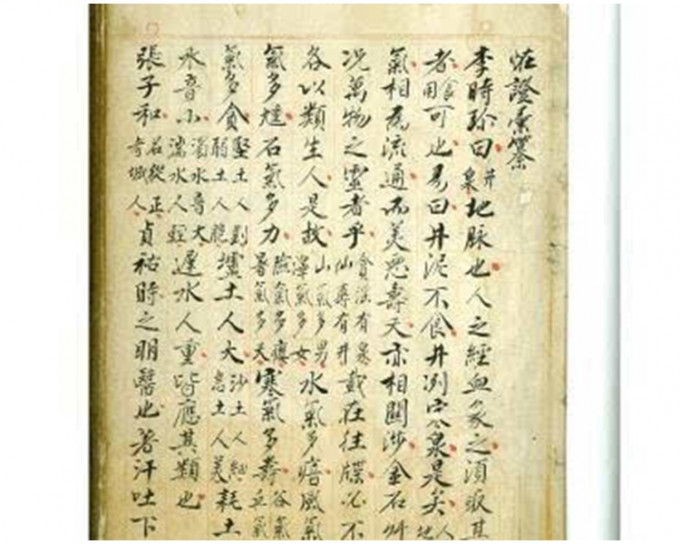 恠證彙纂
李時珍曰井泉地脉也人之經血象之須取其
者食用可也易曰井泥不食井冽寒泉是矣人地
氣相爲流通而美惡壽夭亦相關涉金石艸
况萬物之靈者乎貪淫有泉仙壽有井載在往牒必不
各以類生人是故山氣多男澤氣多女水氣多瘖風氣
氣多尪石氣多力險氣多癭暑氣多夭寒氣多壽谷氣丘氣
氣多貪堅土人剛弱土人脆壚土人大沙土人細息土人美耗土
水音小濁水音大湍水人輕遲水人重皆應其類也
張子和名從正奇城人貞祐時之明醫也著汗吐下